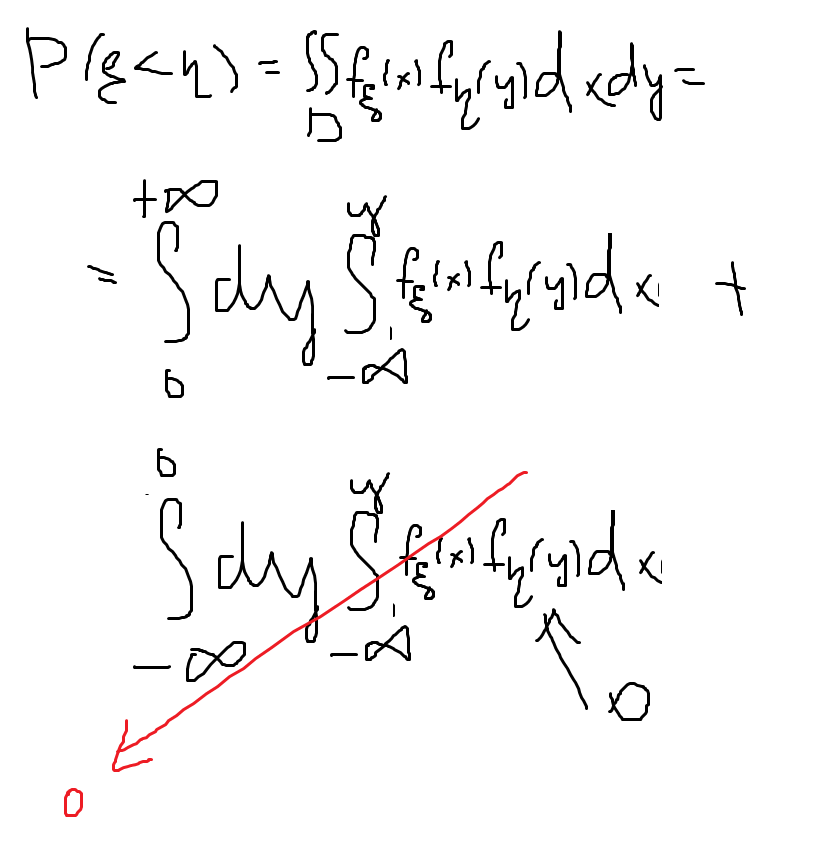 P(ξ<η) = ∬_D f_ξ(x) f_η(y) dxdy =
= ∫_0^{+∞} dy ∫_{-∞}^y f_ξ(x) f_η(y) dx +
∫_{-∞}^0 dy ∫_{-∞}^y f_ξ(x) f_η(y) dx
0
0